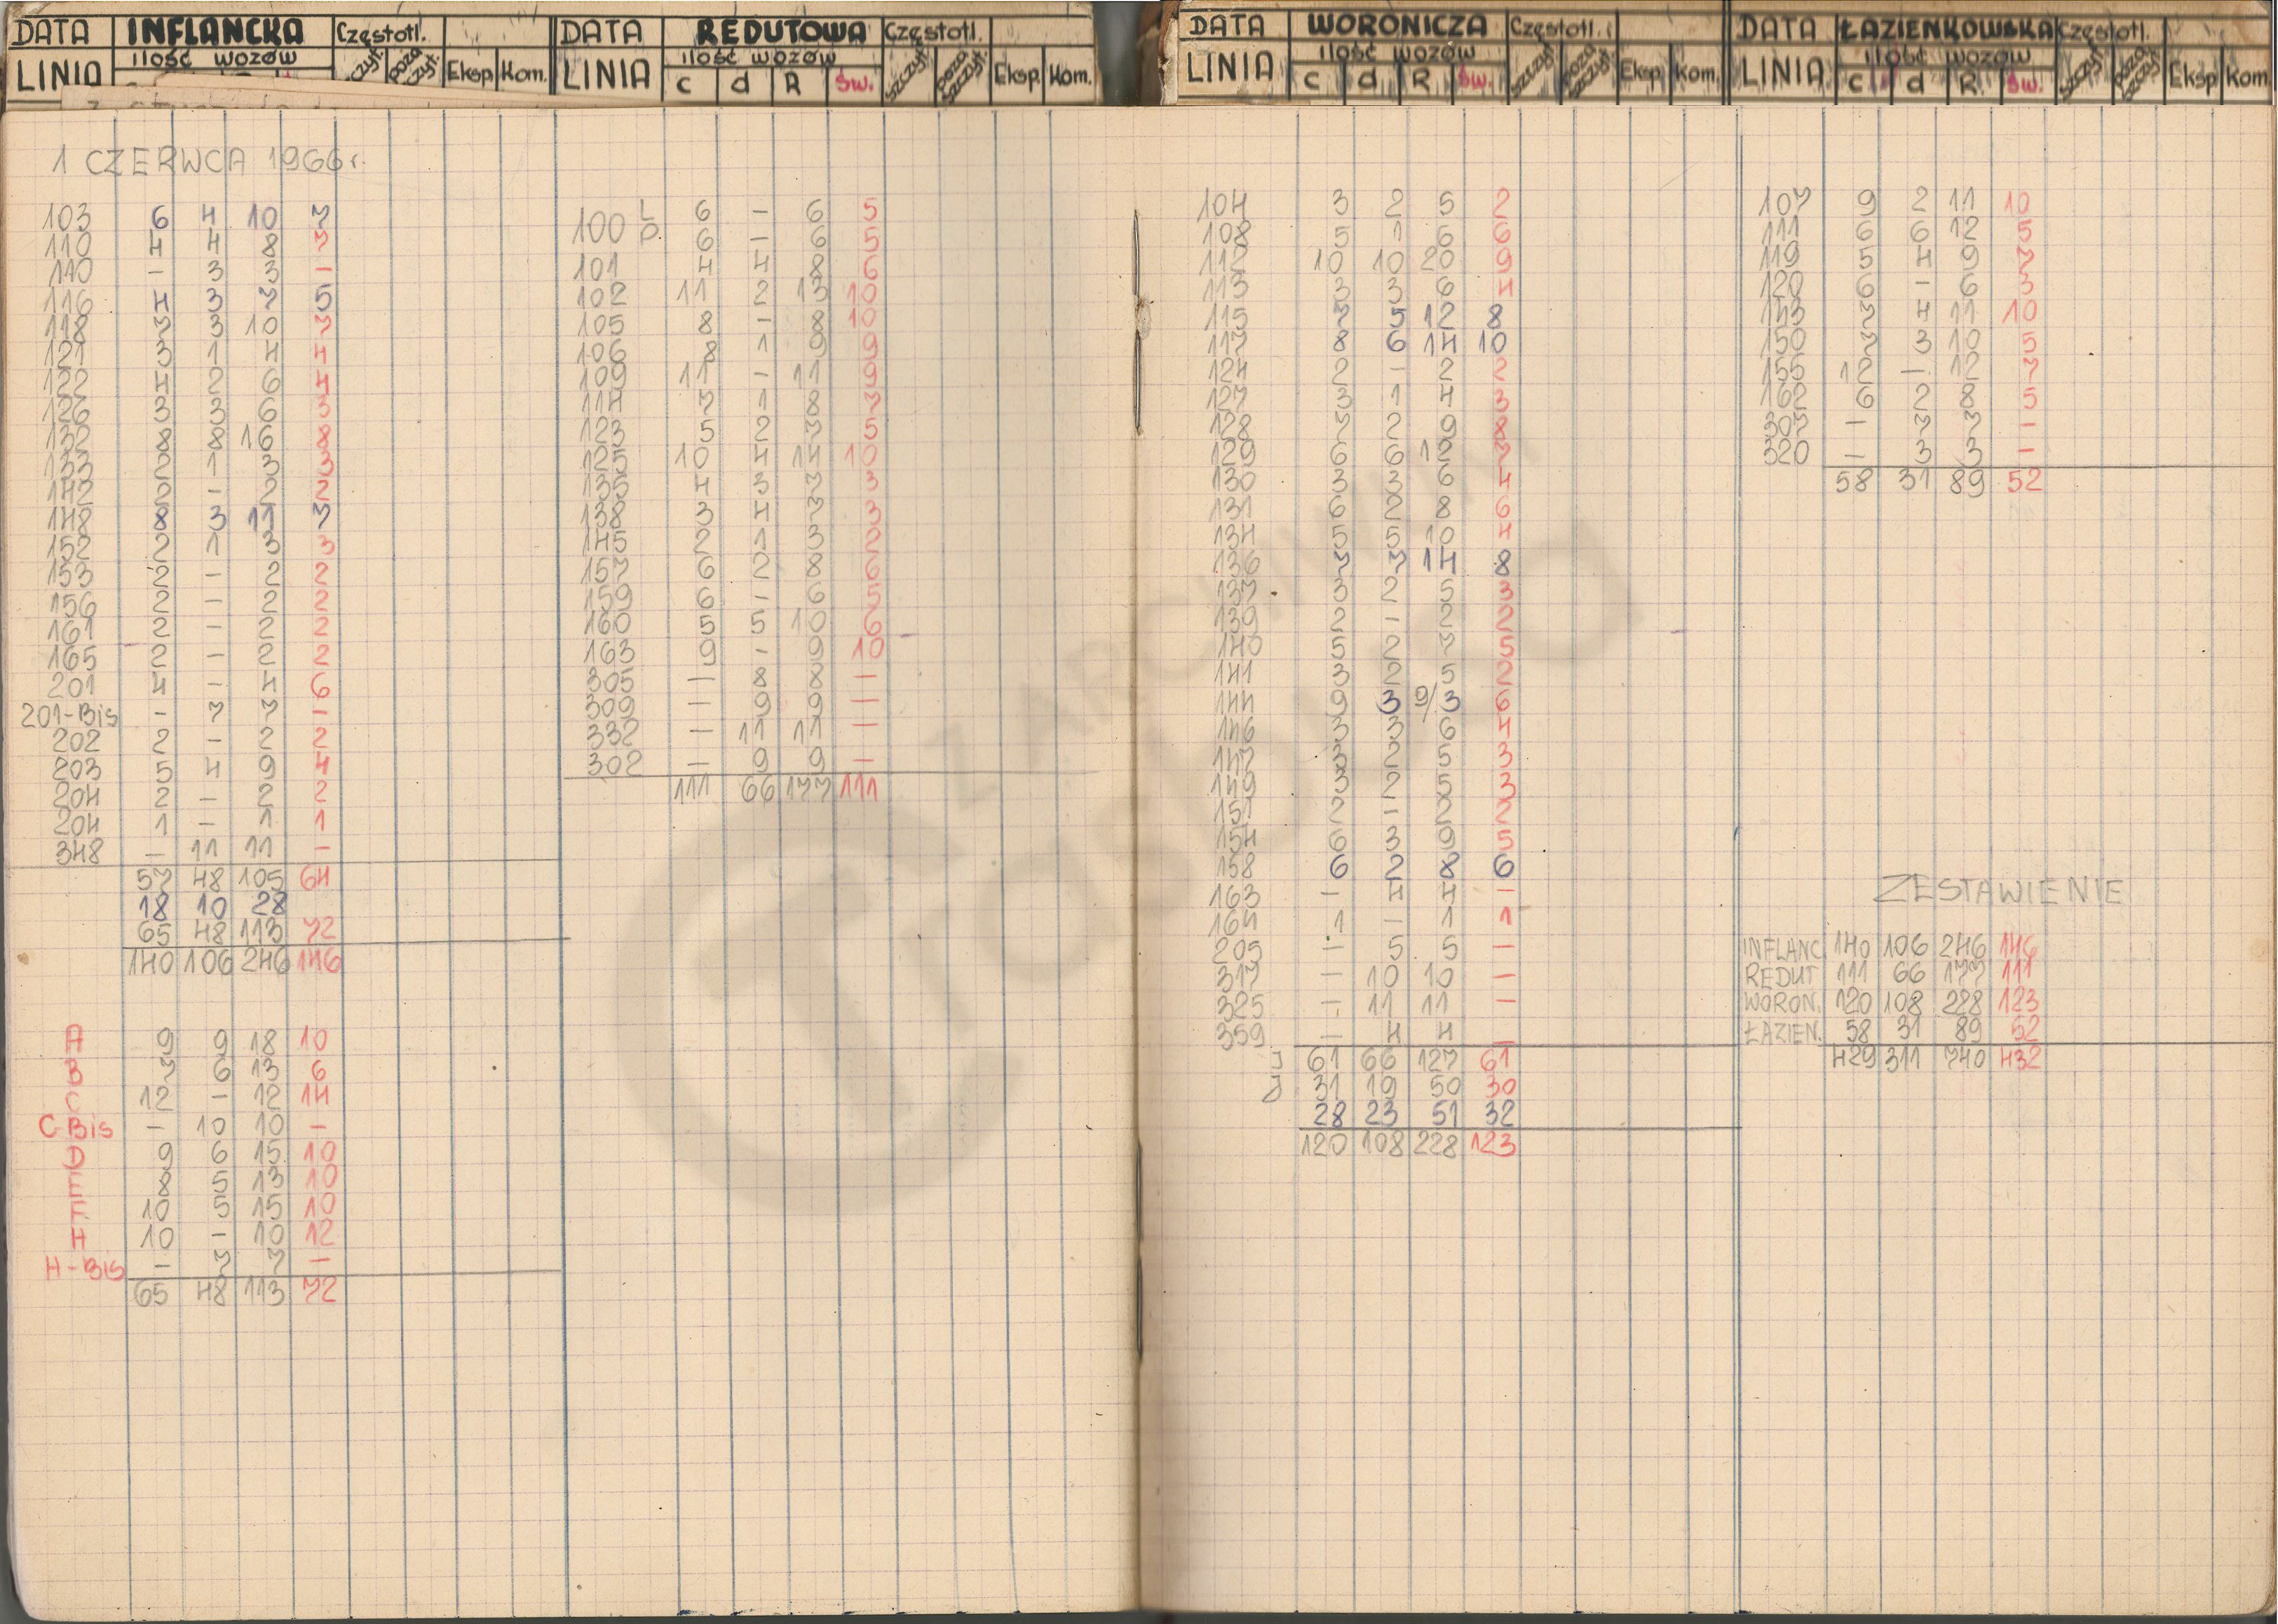 DATA INFLANCKA Częstotl.
ilość wozów
LINIA Eksp. Kom.
1 CZERWCA 1966 r.
103 6 4 10 7
110 4 4 8 7
110 - 3 3 -
116 4 3 7 5
118 7 3 10 7
121 3 1 4 4
122 4 2 6 4
126 3 3 6 3
132 8 8 16 8
133 2 1 3 3
142 2 - 2 2
148 8 3 11 7
152 2 1 3 3
153 2 - 2 2
156 2 - 2 2
161 2 - 2 2
165 2 - 2 2
201 4 - 4 6
201-Bis - 7 7 -
202 2 - 2 2
203 5 4 9 4
204 2 - 2 2
204 1 - 1 1
348 - 11 11 -
57 48 105 64
18 10 28
65 48 113 72
140 106 246 146
A 9 9 18 10
B 7 6 13 6
C 12 - 12 14
C-Bis - 10 10 -
D 9 6 15 10
E 8 5 13 10
F 10 5 15 10
H 10 - 10 12
H-Bis - 7 7 -
65 48 113 72
DATA REDUTOWA Częstotl.
ilość wozów
LINIA c d R św. szczyt poza szczyt. Eksp. Kom.
100 L 6 - 6 5
P. 6 - 6 5
101 4 4 8 6
102 11 2 13 10
105 8 - 8 10
106 8 1 9 9
109 11 - 11 9
114 7 1 8 7
123 5 2 7 5
125 10 4 14 10
135 4 3 7 3
138 3 4 7 3
145 2 1 3 2
157 6 2 8 6
159 6 - 6 5
160 5 5 10 6
163 9 - 9 10
305 - 8 8 -
309 - 9 9 -
332 - 11 11 -
302 - 9 9 -
111 66 177 111
DATA WORONICZA Częstotl.
ilość wozów
LINIA c d R św. szczyt poza szczyt. Eksp. Kom.
104 3 2 5 2
108 5 1 6 6
112 10 10 20 9
113 3 3 6 4
115 7 5 12 8
117 8 6 14 10
124 2 - 2 2
127 3 1 4 3
128 7 2 9 8
129 6 6 12 7
130 3 3 6 4
131 6 2 8 6
134 5 5 10 4
136 7 7 14 8
137 3 2 5 3
139 2 - 2 2
140 5 2 7 5
141 3 2 5 2
144 9 3 9/3 6
146 3 3 6 4
147 3 2 5 3
149 3 2 5 3
151 2 - 2 2
154 6 3 9 5
158 6 2 8 6
163 - 4 4 -
164 1 - 1 1
205 - 5 5 -
317 - 10 10 -
325 - 11 11 -
359 - 4 4 -
J 61 66 127 61
D 31 19 50 30
28 23 51 32
120 108 228 123
DATA ŁAZIENKOWSKA Częstotl.
ilość wozów
LINIA c d R św. szczyt poza szczyt. Eksp Kom.
107 9 2 11 10
111 6 6 12 5
119 5 4 9 7
120 6 - 6 3
143 7 4 11 10
150 7 3 10 5
155 12 - 12 7
162 6 2 8 5
307 - 7 7 -
320 - 3 3 -
58 31 89 52
ZESTAWIENIE
INFLANC 140 106 246 146
REDUT 111 66 177 111
WORON. 120 108 228 123
ŁAZIEN. 58 31 89 52
429 311 740 432